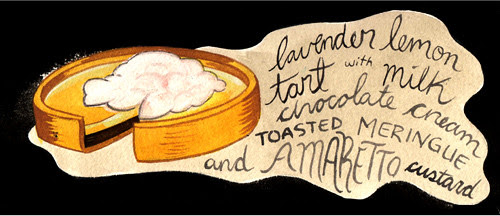 lavender lemon
tart with milk
chocolate cream
TOASTED MERINGUE
and AMARETTO custard